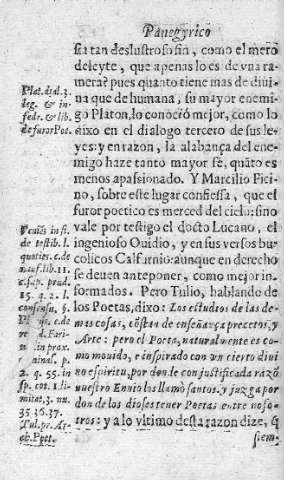 Panegyrico
sia tan deslustroso fin, como el mero
deleyte, que apenas lo es de vna ra-
mera? pues quanto tiene mas de diui-
na que de humana, su mayor enemi-
go Platon, lo conoció mejor, como lo
dixo en el dialogo tercero de sus le-
yes: y en razon, la alabança del ene-
migo haze tanto mayor fé, quãto es
menos apasionado. Y Marcilio Fici-
no, sobre este lugar confiessa, que el
furor poetico es merced del cielo: si no
vale por testigo el docto Lucano, el
ingenioso Ouidio, y en sus versos bu-
colicos Calfurnio: aunque en derecho
se deuen anteponer, como mejor in-
formados. Pero Tulio, hablando de
los Poetas, dixo: Los estudios de las de-
mas cosas, cõstan de enseñança precetos, y
Arte: pero el Poeta, naturalmente es co-
mo mouido, e inspirado con vn cierto diui
no espiritu, por don le con justificada razõ
nuestro Ennio los llamò santos. y juzga por
don de los dioses tener Poetas entre noso-
tros: y a lo vltimo desta razon dize, q̃
siem-
Plat. dial. 3.
leg. & in
fedr. & lib.
de furor Poet.
de testib. l.
15. q. 2. l.
consensu,
2. q. 55. in
sp. cot. 1. li-
mitat. 3. nu.
35. 36. 37.
Tul. pr. Ar-
ch. Poet.